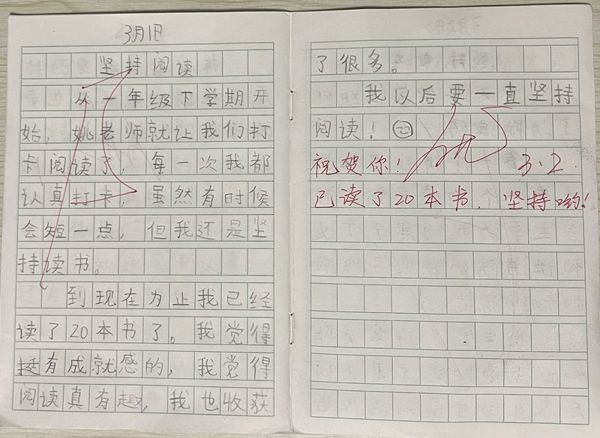 3月1日
坚持阅读
从一年级下学期开
始，姚老师就让我们打
卡阅读了，每一次我都
认真打卡，虽然有时候
会短一点，但我还是坚
持读书。
到现在为止我已经
读了20本书了。我觉得
挺有成就感的，我觉得
阅读真有趣，我也收获
了很多。
我以后要一直坚持
阅读！
优
祝贺你！
3.2.
已读了20本书，坚持哟！